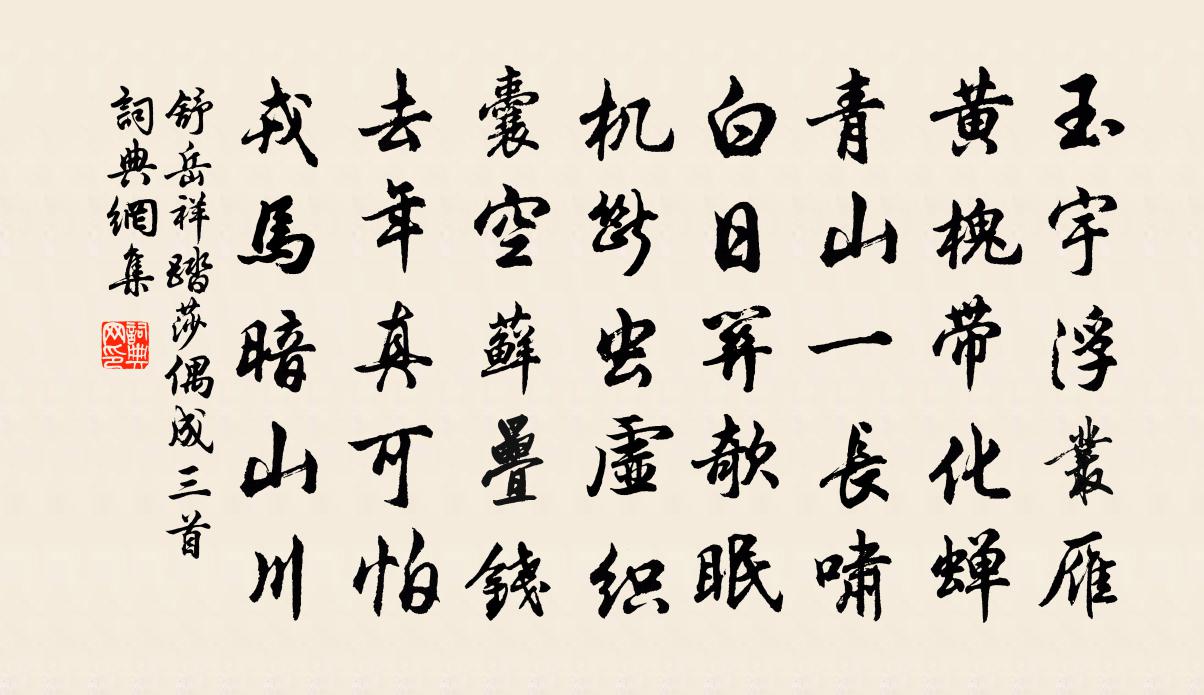 玉宇浮叢雁
黄槐帶化蝉
青山一長嘯
白日幾欹眠
机斷虫虛织
囊空蘚疊錢
去年真可怕
戎馬暗山川
舒岳祥踏莎偶成三首
詞典網集
詞典网印